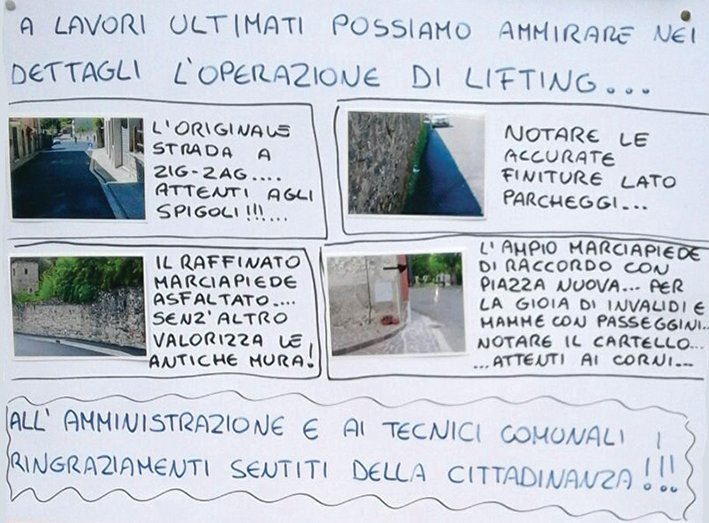 A LAVORI ULTIMATI POSSIAMO AMMIRARE NEI
DETTAGLI L'OPERAZIONE DI LIFTING...
L'ORIGINALE
STRADA A
ZIG-ZAG....
ATTENTI AGLI
SPIGOLI!!!....
NOTARE LE
ACCURATE
FINITURE LATO
PARCHEGGI...
IL RAFFINATO
MARCIAPIEDE
ASFALTATO....
SENZ'ALTRO
VALORIZZA LE
ANTICHE MURA!
L'AMPIO MARCIAPIEDE
DI RACCORDO CON
PIAZZA NUOVA... PER
LA GIOIA DI INVALIDI E
MAMME CON PASSEGGINI...
NOTARE IL CARTELLO...
...ATTENTI AI CORNI...
ALL'AMMINISTRAZIONE E AI TECNICI COMUNALI I
RINGRAZIAMENTI SENTITI DELLA CITTADINANZA!!!